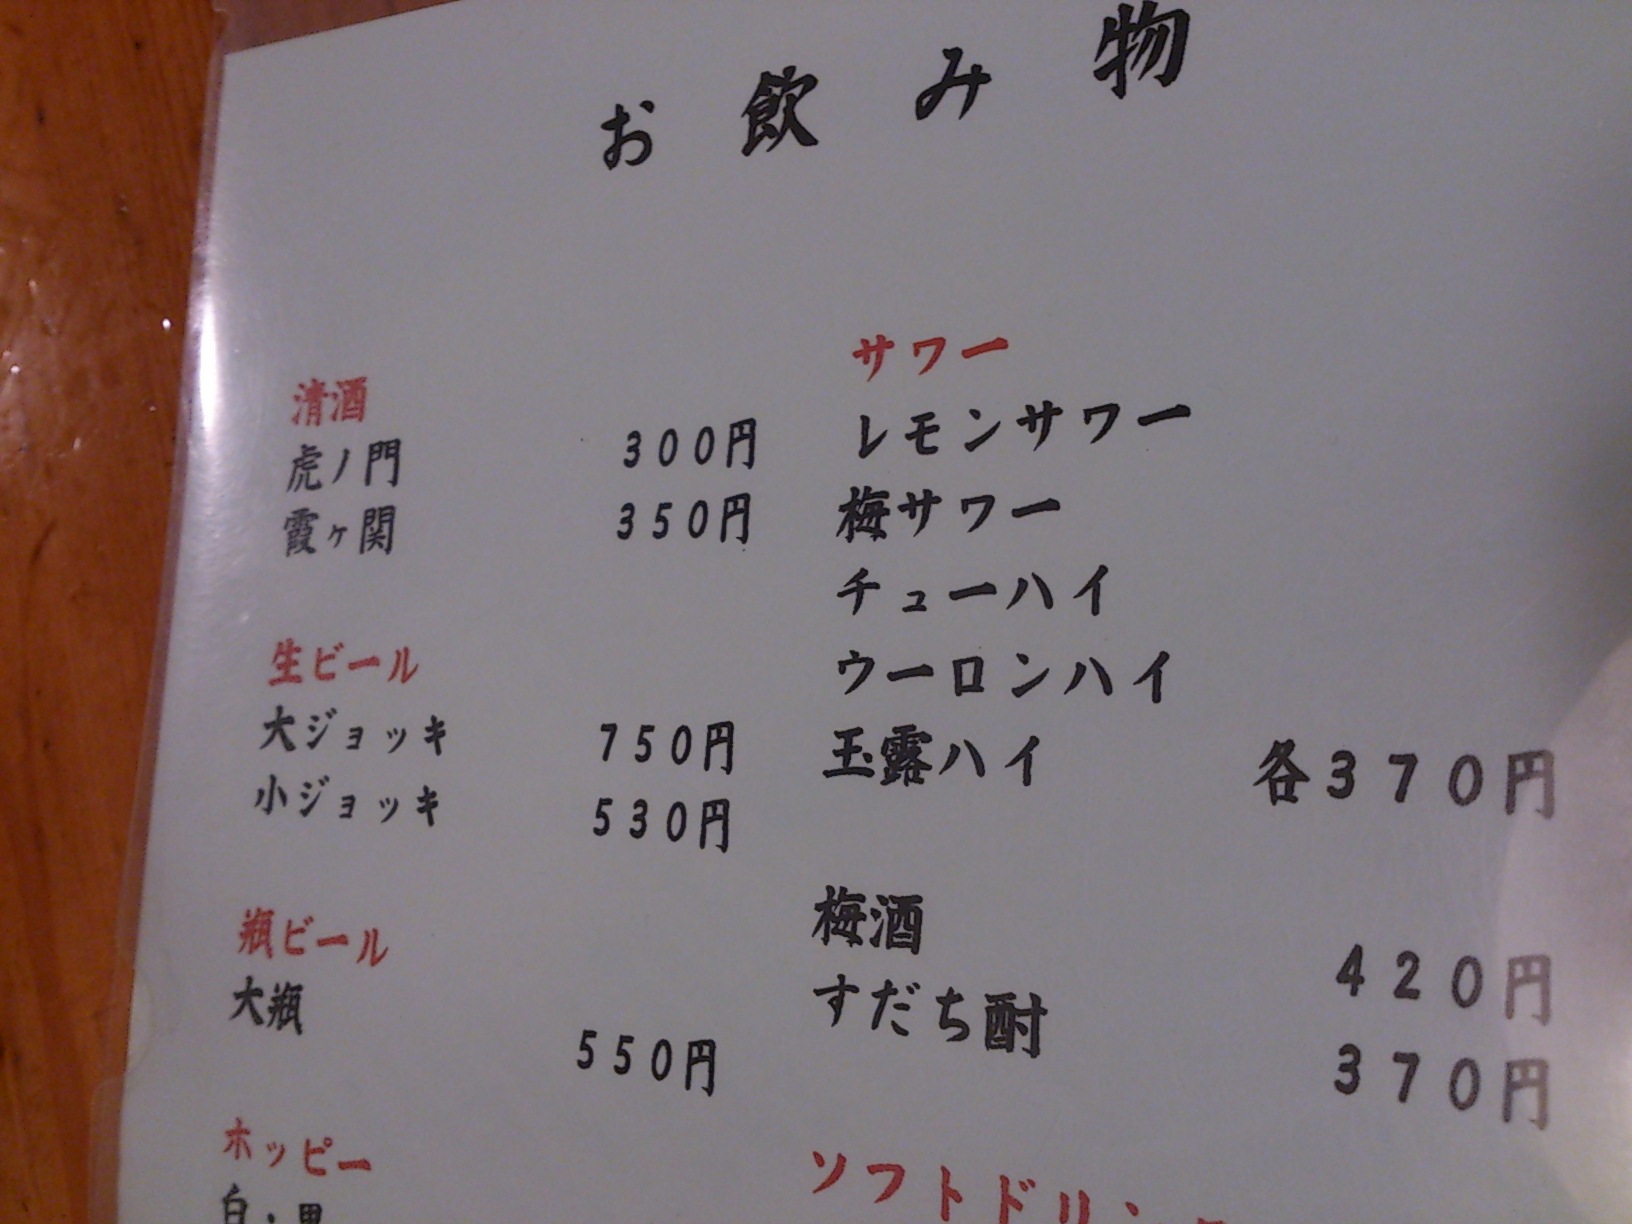 お飲み物
清酒
虎ノ門 300円
霞ヶ関 350円
生ビール
大ジョッキ 750円
小ジョッキ 530円
瓶ビール
大瓶
550円
ホッピー
白・黒
サワー
レモンサワー
梅サワー
チューハイ
ウーロンハイ
玉露ハイ 各370円
梅酒 420円
すだち酎 370円
ソフトドリン